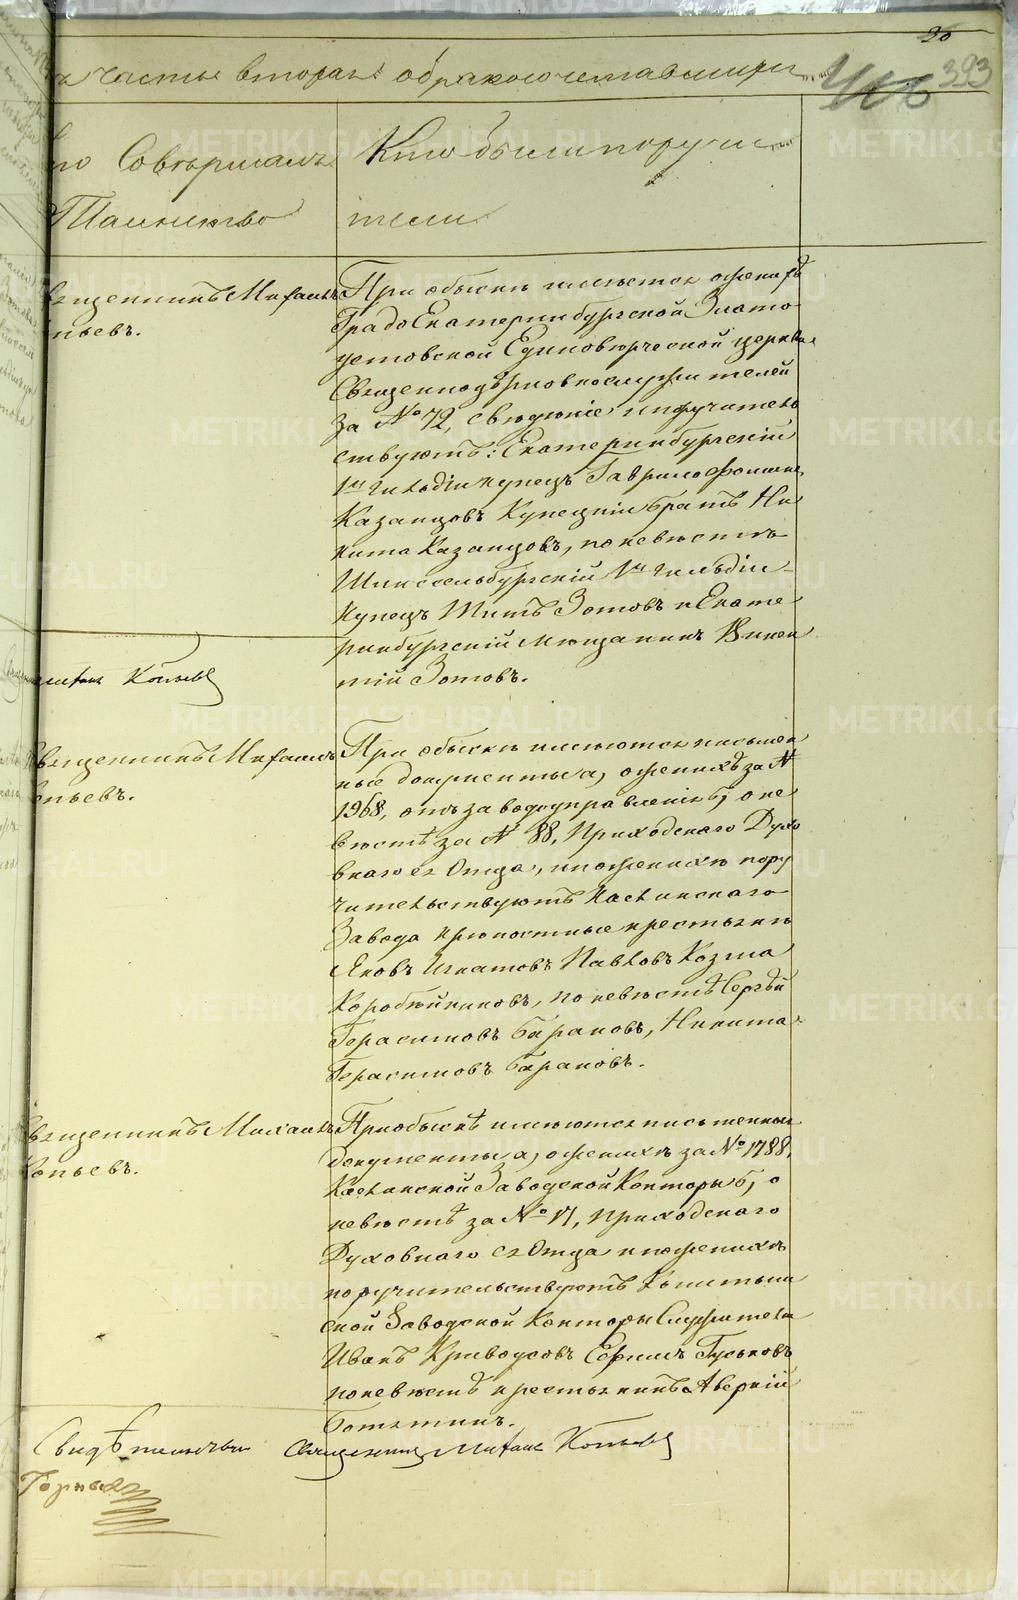 26
393
ъ часть вторая о бракосочетавшихся
то Совершалъ
Таинство
Кто были поручи
тели
Священникъ Михаилъ
пьевъ.
При обыскѣ имѣется о женихѣ
Градо Екатеринбургской Злато
устовской Единовѣрческой церкви
Священноцерковнослужителей
за № 72, свѣденіе и поручитель
ствуютъ: Екатеринбургскій
1й гильдіи купецъ Гаврило Фомичь
Казанцовъ Купецкій братъ Ни
кита Казанцовъ, по невѣстѣ
Шлиссельбургскій 1й гильдіи
купецъ Титъ Зотовъ и Екате
ринбургскій мѣщанинъ Викен
тій Зотовъ.
Михаилъ Копьевъ
Священникъ Михаилъ
опьевъ.
При обыскѣ имѣются письмен
ные документы а, о женихѣ за №
1968, отъ заводоуправленія б, о не
вѣстѣ за № 88, Приходскаго Духо
внаго ея Отца, и по женихѣ пору
чительствуютъ Каслинскаго
Завода крѣпостные крестьяне
Яковъ Игнатовъ Павловъ Козма
Коробейниковъ, по невѣстѣ Сергѣй
Герасимовъ Барановъ, Никита
Герасимовъ Барановъ.
Священникъ Михаилъ
Копьевъ.
При обыскѣ имѣются письменные
документы а, о женихѣ за № 1788,
Каслинской Заводской Конторы б, о
невѣстѣ за № 17, Приходскаго
Духовнаго ея Отца и по женихѣ
поручительствуютъ Кыштым
ской Заводской Конторы Служители
Иванъ Кривоусовъ Ефимъ Гуськовъ
по невѣстѣ крестьянинъ Аверкій
Свидѣтельствовалъ
Священникъ Михаилъ Копьевъ
METRIKI.GASO-URAL.RU